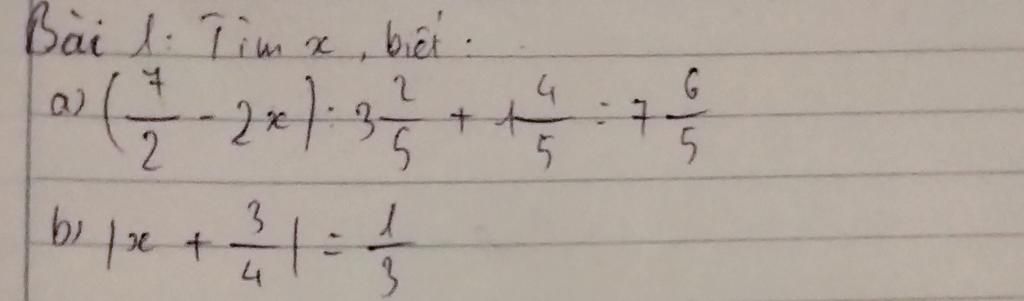 Bài 1: Tìm x, biết:
a) (7/2 - 2x) : 3 2/5 + 1 4/5 = 7 6/5
b) |x + 3/4| = 1/3